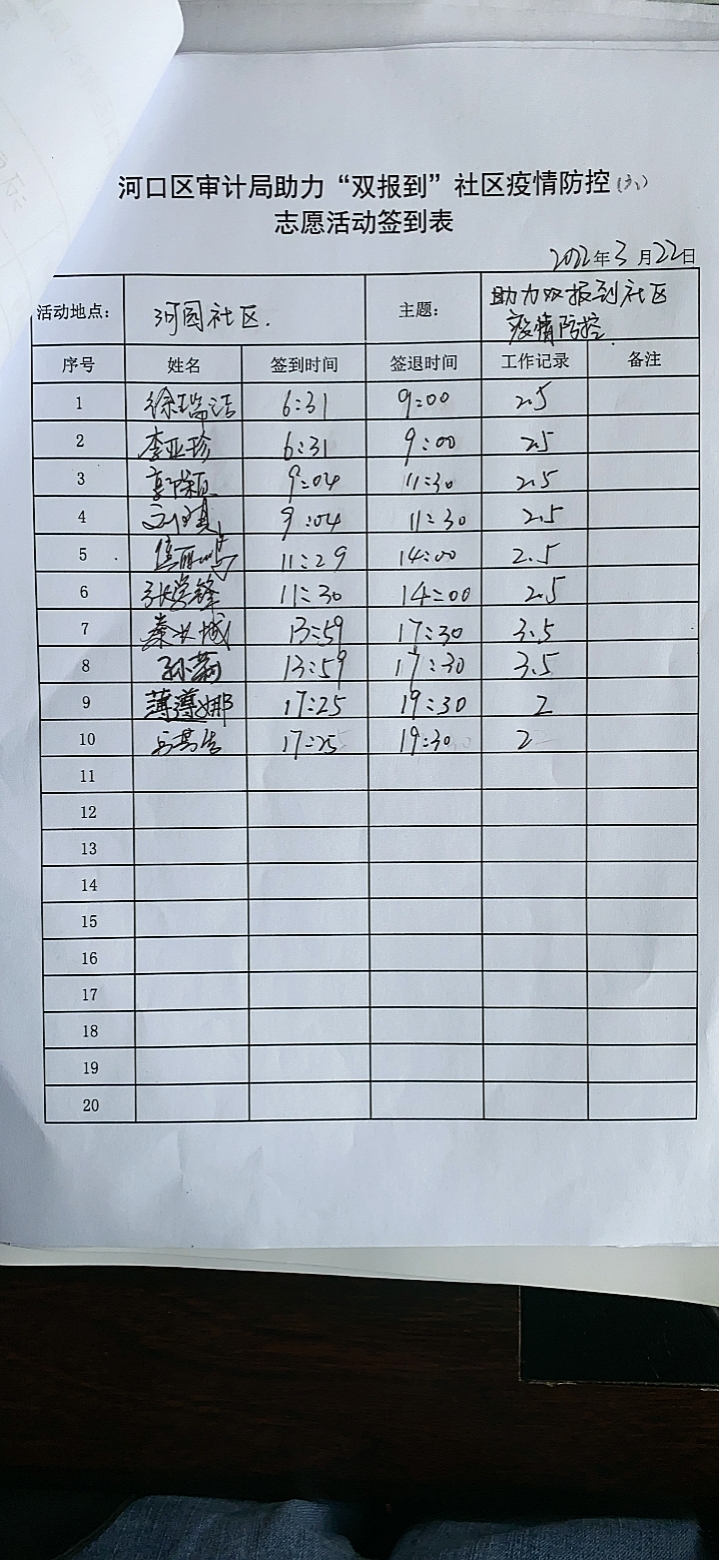 河口区审计局助力“双报到”社区疫情防控(六)
志愿活动签到表
2022年3月22日
活动地点: 河园社区. 主题: 助力双报到社区
疫情防控.
序号 姓名 签到时间 签退时间 工作记录 备注
1 徐瑞洁 6:31 9:00 2.5
2 李亚珍 6:31 9:00 2.5
3 郭颖 9:04 11:30 2.5
4 9:04 11:30 2.5
5 11:29 14:00 2.5
6 张学锋 11:30 14:00 2.5
7 秦长城 13:59 17:30 3.5
8 13:59 17:30 3.5
9 17:25 19:30 2
10 17:25 19:30 2
11
12
13
14
15
16
17
18
19
20